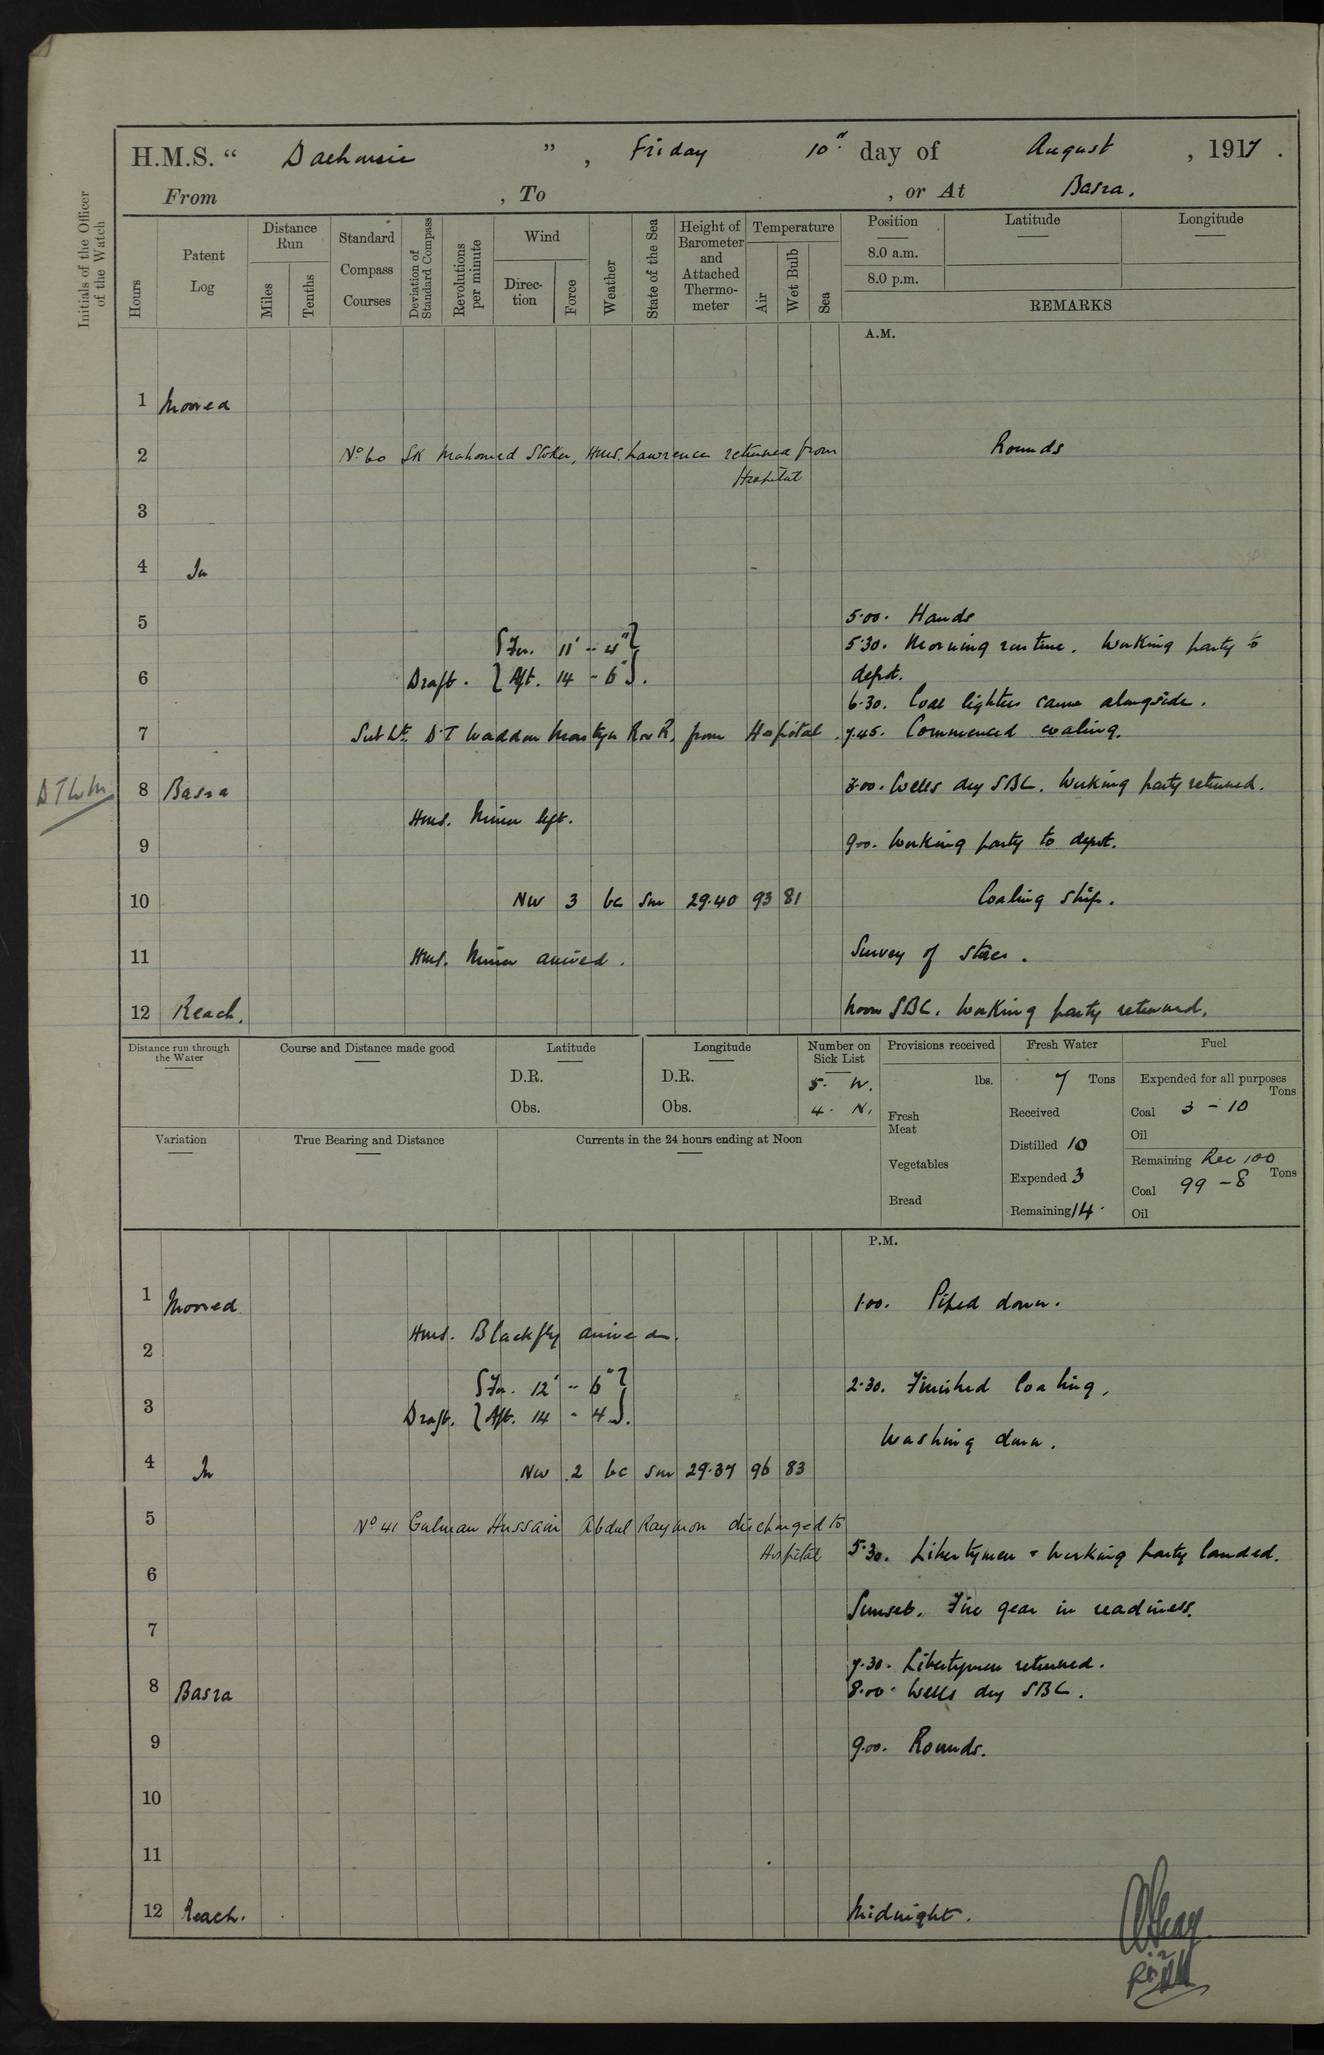 H.M.S. “ Dalhousie ” , Friday 10th day of August , 1917 .
From , To , or At Basra.
Initials of the Officer of the Watch
Hours
Patent Log
Distance Run
Miles
Tenths
Standard Compass Courses
Deviation of Standard Compass
Revolutions per minute
Wind
Direction
Force
Weather
State of the Sea
Height of Barometer and Attached Thermometer
Temperature
Air
Wet Bulb
Sea
Position
8.0 a.m.
8.0 p.m.
Latitude
Longitude
REMARKS
A.M.
1 Moored
2 No 60 SK Mahomed Stoker, HMS. Lawrence returned from Hospital Rounds
3
4 In
5 5.00. Hands
Draft. {For. 11' - 4"} {Aft. 14 - 6"}.
5.30. Morning routine. Working party to
6 depot.
6.30. Coal lighters came alongside.
7 Sub Lt. D.T. Waddon Mostyn RNR, from Hospital. 7.45. Commenced coaling.
DTWM 8 Basra 8.00. Wells dry SBC. Working party returned.
HMS. Miner left.
9 9.00. Working party to depot.
10 NW 3 bc Sm 29.40 93 81 Coaling ship.
11 HMS. Miner arrived. Survey of stores.
12 Reach. Noon SBC. Working party returned.
Distance run through the Water
Course and Distance made good
Latitude
D.R.
Obs.
Longitude
D.R.
Obs.
Number on Sick List
5. W.
4. N.
Provisions received
lbs.
Fresh Meat
Vegetables
Bread
Fresh Water
7 Tons
Received
Distilled 10
Expended 3
Remaining 14
Fuel
Expended for all purposes
Tons
Coal 3 - 10
Oil
Remaining Rec 100
Tons
Coal 99 - 8
Oil
Variation
True Bearing and Distance
Currents in the 24 hours ending at Noon
P.M.
1 Moored 1.00. Piped down.
HMS. Blackfly arrived.
2
Draft. {For. 12' - 6"} {Aft. 14 - 4}.
2.30. Finished Coaling.
3
Washing down.
4 In NW 2 bc Sm 29.37 96 83
5 No 41 Gulman Hussain Abdul Raymon discharged to Hospital
5.30. Libertymen & working party landed.
6
Sunset. Fire gear in readiness.
7
7.30. Libertymen returned.
8 Basra 8.00. Wells dry SBC.
9 9.00. Rounds.
10
11
12 Reach. Midnight.